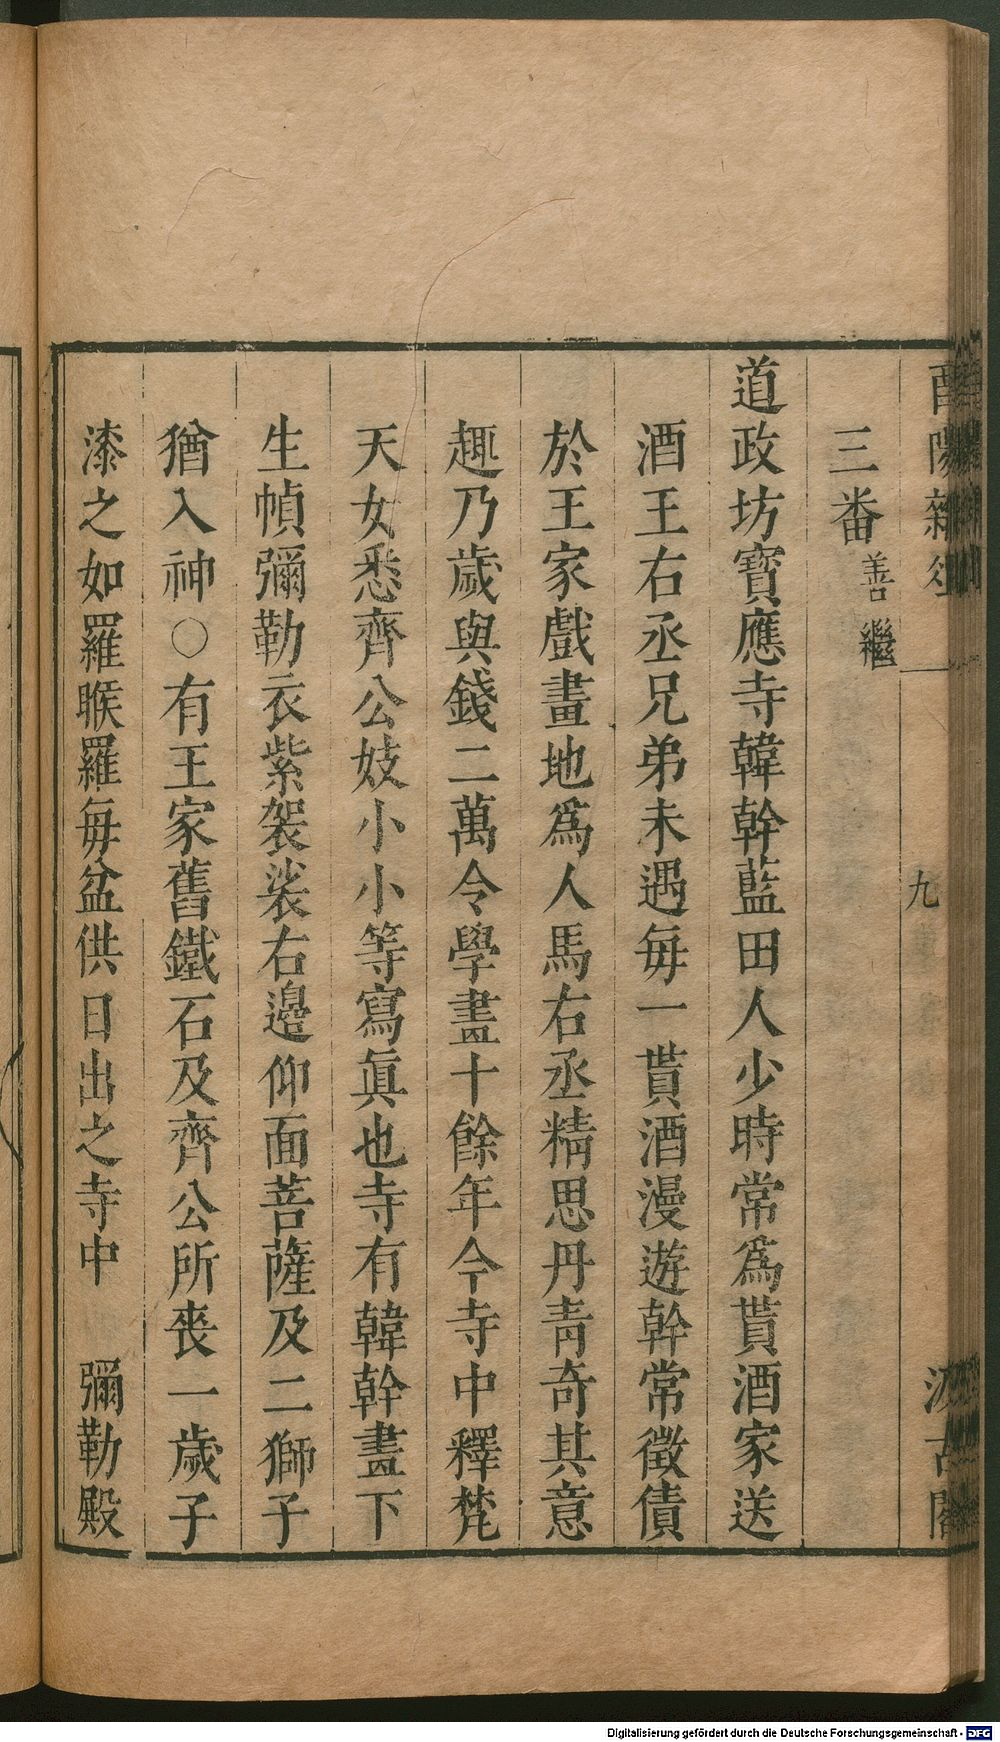 酉陽雜俎 九 汲古閣
三番善繼
道政坊寶應寺韓幹藍田人少時常爲貰酒家送
酒王右丞兄弟未遇每一貰酒漫遊幹常徵債
於王家戲畫地爲人馬右丞精思丹靑奇其意
趣乃歲與錢二萬令學畫十餘年今寺中釋梵
天女悉齊公妓小小等寫眞也寺有韓幹畫下
生幀彌勒衣紫袈裟右邊仰面菩薩及二獅子
猶入神○有王家舊鐵石及齊公所喪一歲子
漆之如羅睺羅每盆供日出之寺中 彌勒殿
Digitalisierung gefördert durch die Deutsche Forschungsgemeinschaft - DFG